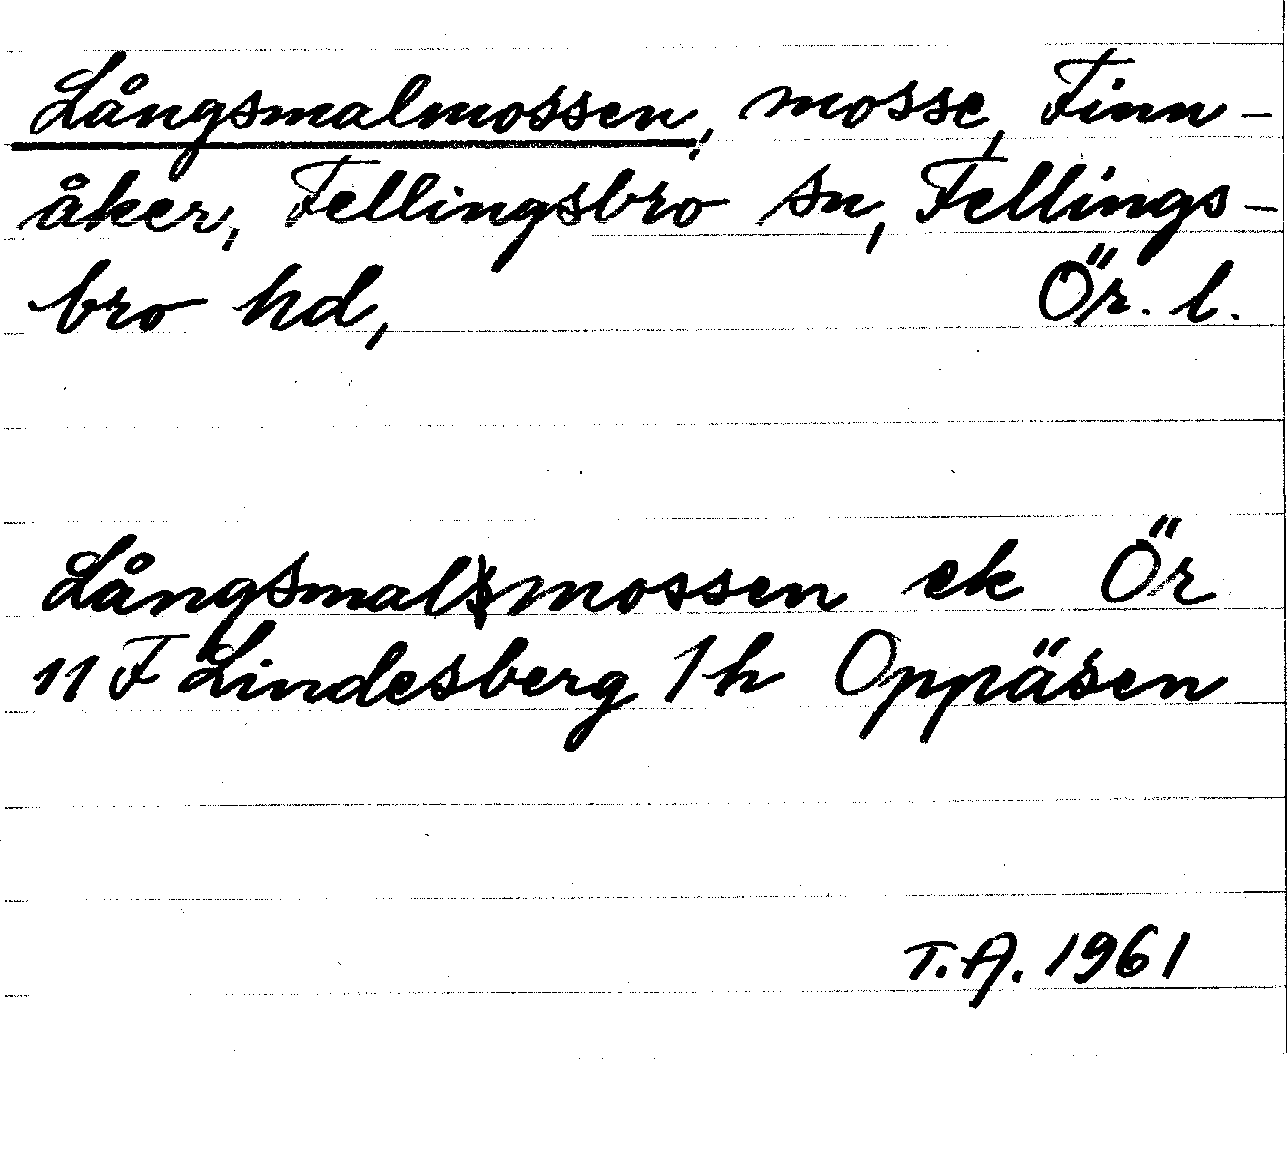 Långsmalmossen, mosse, Finn-
åker, Fellingsbro sn, Fellings-
bro hd, Ör. l.
Långsmalmossen ek Ör
11 F Lindesberg 1h Oppäsen
T.A. 1961